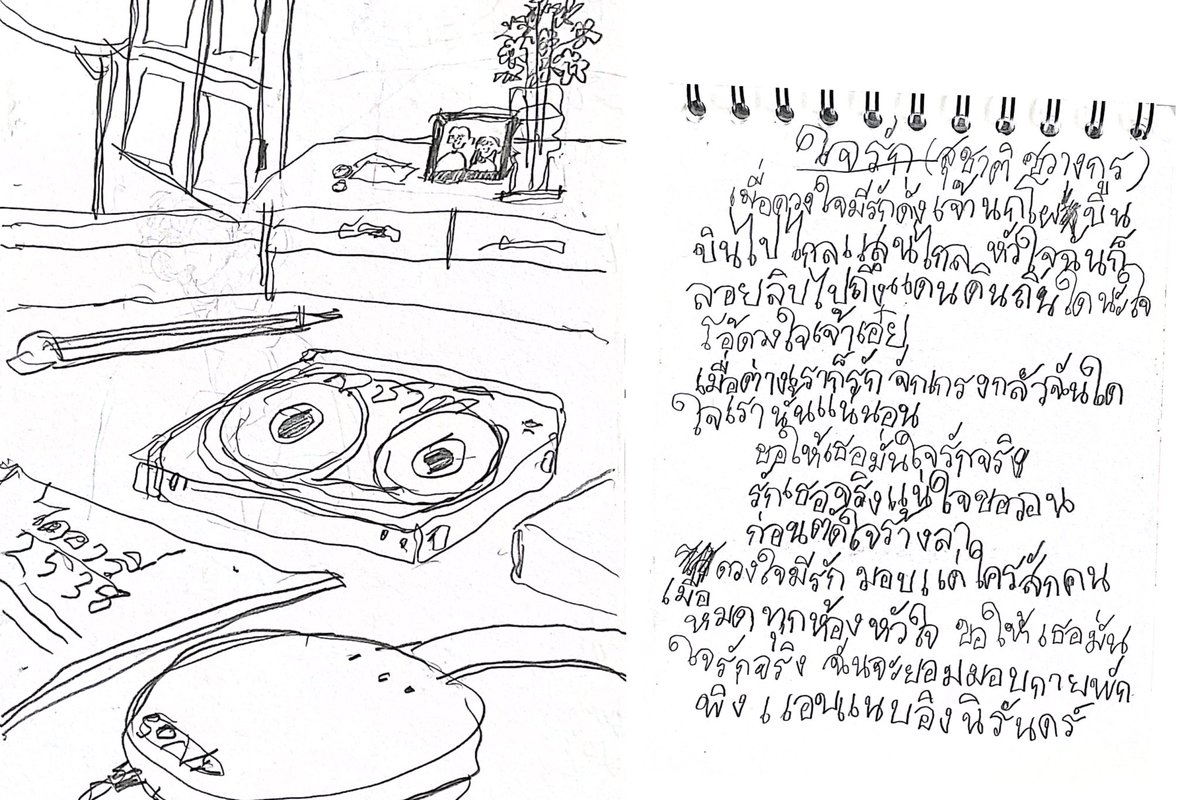 2538
SONY
ใจรัก (สุชาติ ชวางกูร)
เมื่อดวงใจมีรักดั่งเจ้านกโผบิน
บินไปไกลแสนไกล หัวใจฉันก็
ลอยลิบไปถึงแดนดินถิ่นใดนะใจ
โอ้ดวงใจเจ้าเอ๋ย
เมื่อต่างเราก็รัก จักเกรงกลัวฉันใด
ใจเรานั้นแน่นอน
ขอให้เธอมั่นใจรักจริง
รักเธอจริงแน่ใจขอวอน
ก่อนตัดใจร้างลา
เมื่อดวงใจมีรัก มอบแด่ใครสักคน
หมดทุกห้องหัวใจ ขอให้เธอมั่น
ใจรักจริง ฉันจะยอมมอบกายพัก
พิง แอบแนบอิงนิรันดร์